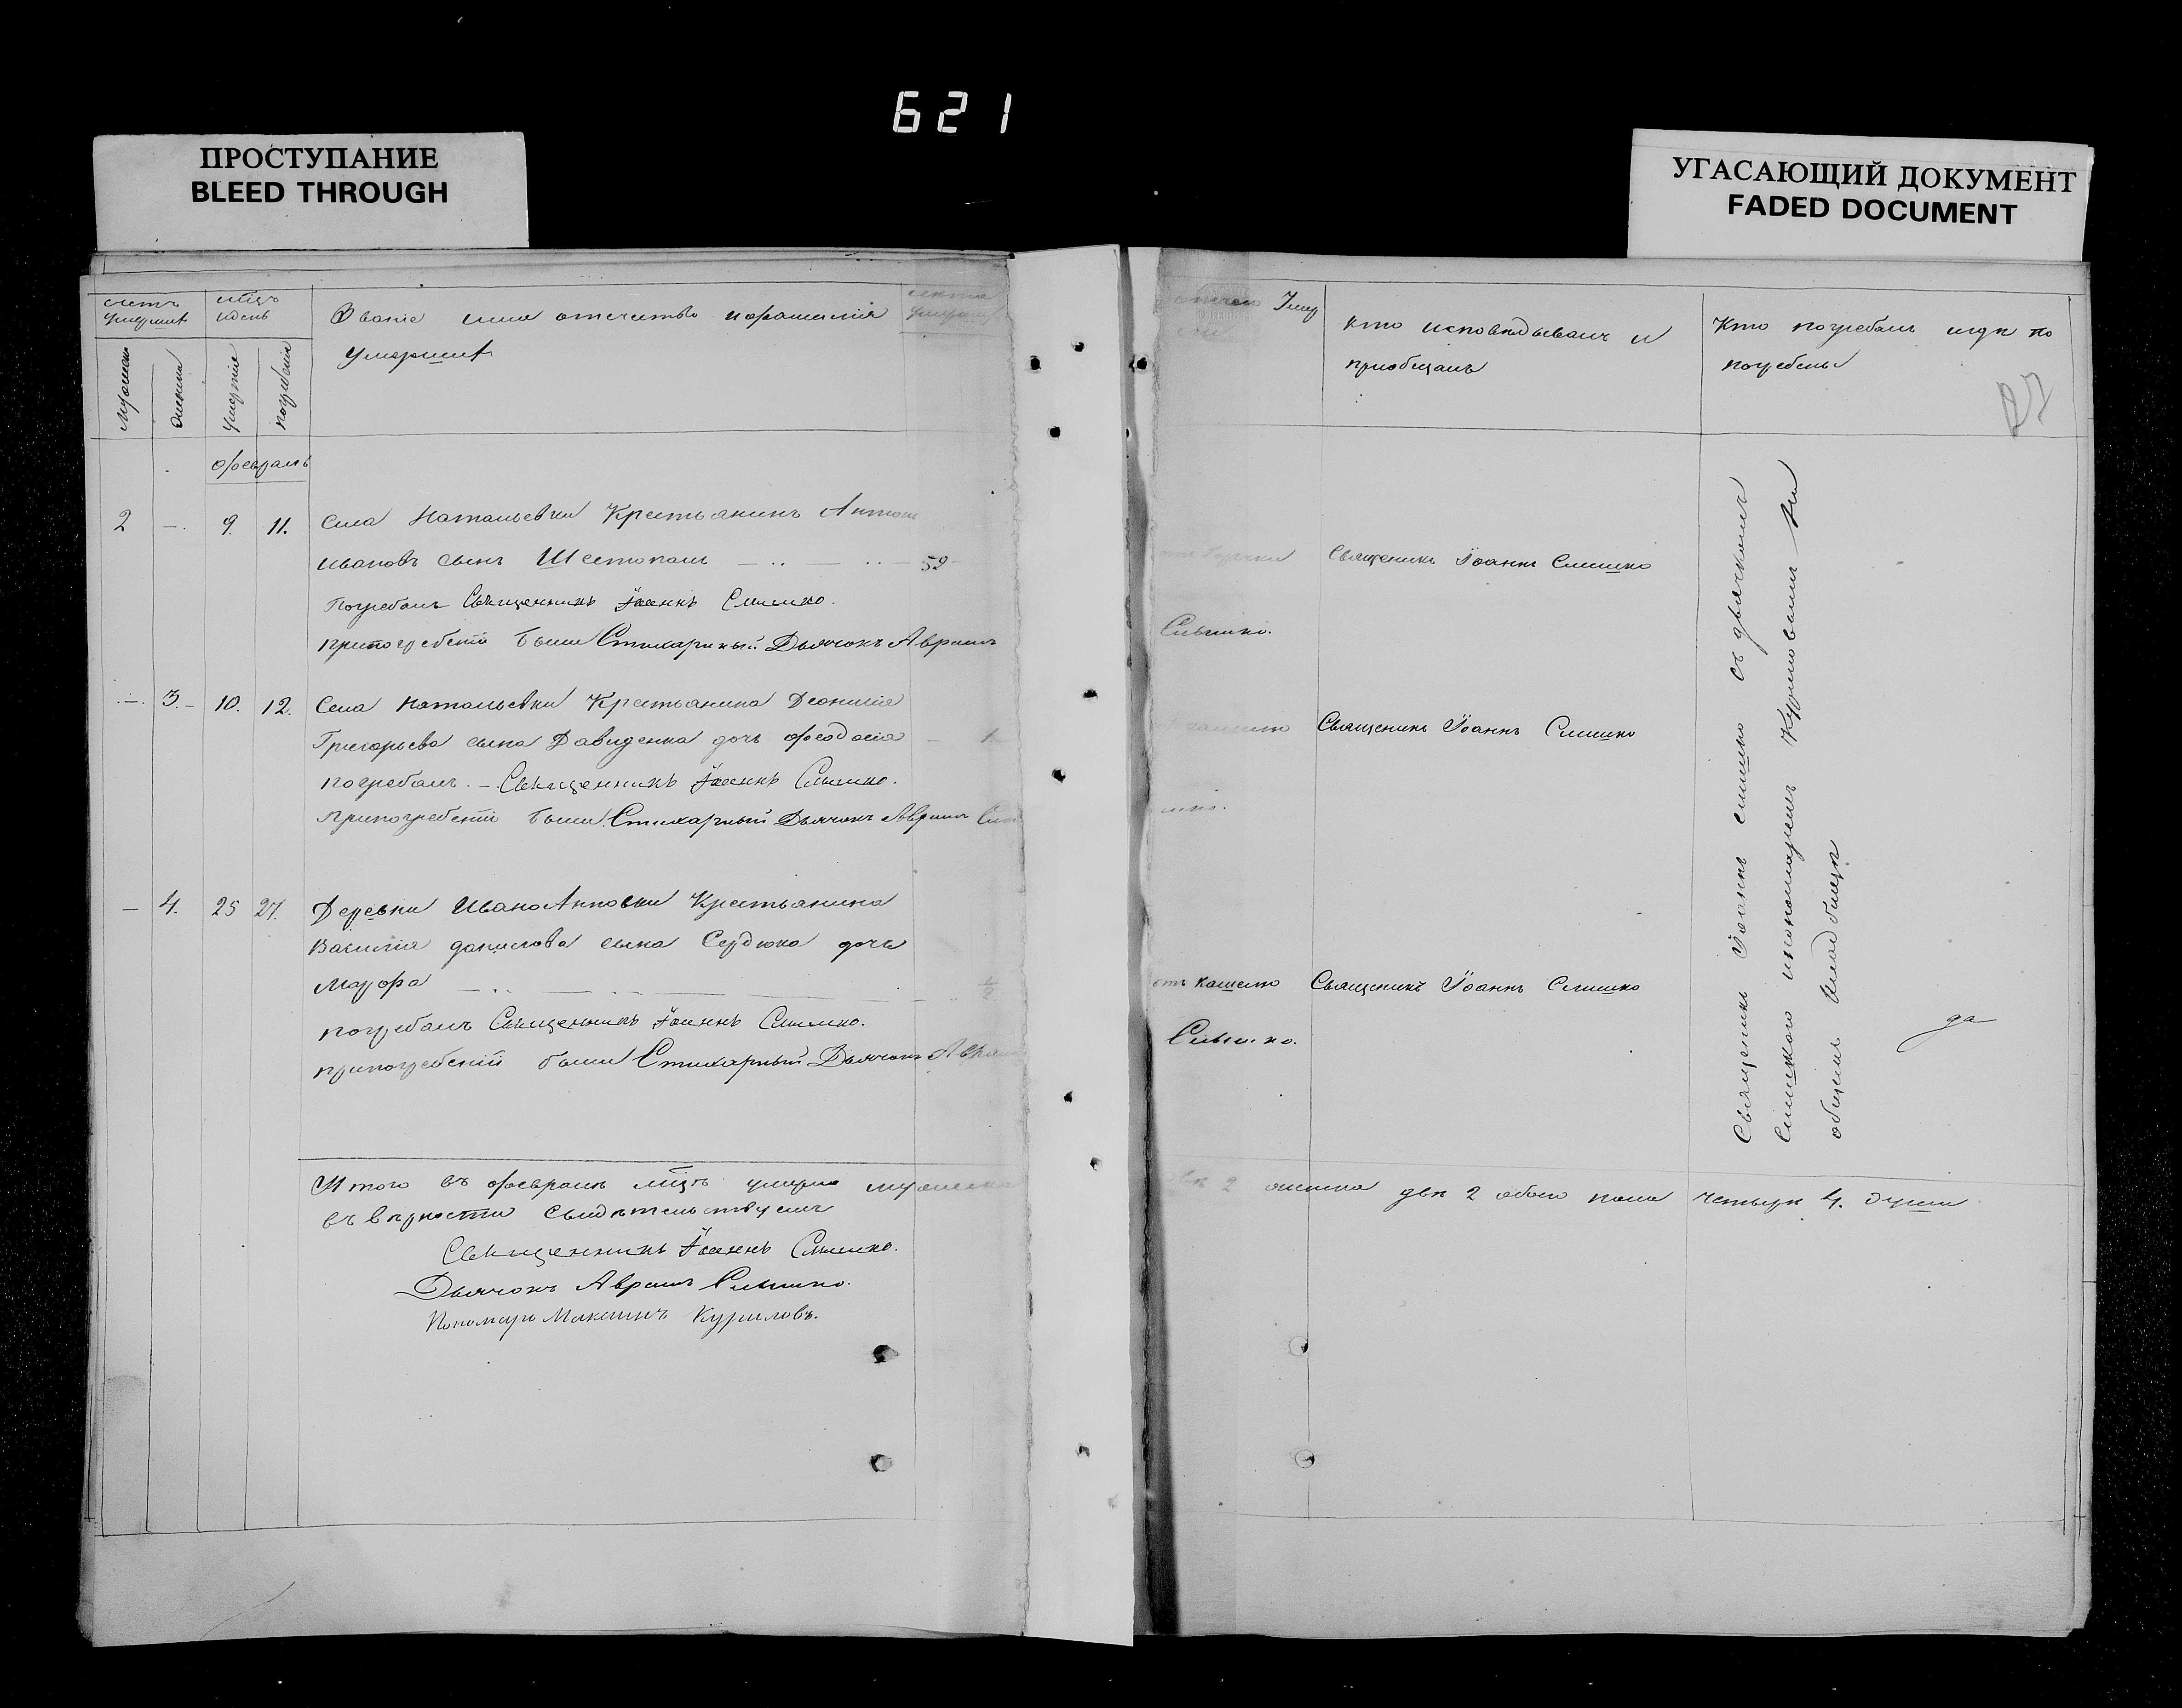 621
ПРОСТУПАНИЕ
BLEED THROUGH
УГАСАЮЩИЙ ДОКУМЕНТ
FADED DOCUMENT
счетъ умершихъ
мѣсяцъ и день
Званіе имя отчество и фамилія
умершихъ
лета
умершаго
Мужеска
женска
умертвіе
погребеніе
февраль
2 — 9. 11. Села Натальевки Крестьянинъ Антонъ
Ивановъ сынъ Шестопалъ 59
Погребалъ Священникъ Іоаннъ Слишко.
при погребеніи были Стихарный Дьячокъ Аврамъ
— 3. 10. 12. Села Натальевки Крестьянина Деонисія
Григорьева сына Давиденка дочь Феодосія — 1
погребалъ. — Священникъ Іоаннъ Слишко.
При погребеніи были Стихарный Дьячокъ Аврамъ
— 4. 25 27. Деревни ИваноАнновки Крестьянина
Василія данилова сына Сердюка дочь
Мавра 1/2
погребалъ Священникъ Іоаннъ Слишко.
при погребеніи были Стихарный Дьячокъ Аврамъ
Итого въ февралѣ мѣсяцѣ умерло мужеска
въ вѣрности свидѣтельствуемъ
Священникъ Іоаннъ Слишко.
Дьячокъ Аврамъ Слишко.
Пономарь Максимъ Куриловъ.
кто исповѣдывалъ и
приобщалъ
Кто погребалъ и гдѣ по
погребены
Священикъ Іоаннъ Слишко
Слишко.
Священикъ Іоаннъ Слишко
отъ кашелю Священикъ Іоаннъ Слишко
Слишко.
Священикъ Іоаннъ слишко съ дьячкомъ
Слишкого и пономаремъ Куриловымъ на
общемъ кладбищѣ
да
2 женска двѣ 2 обоего пола четыре 4. души